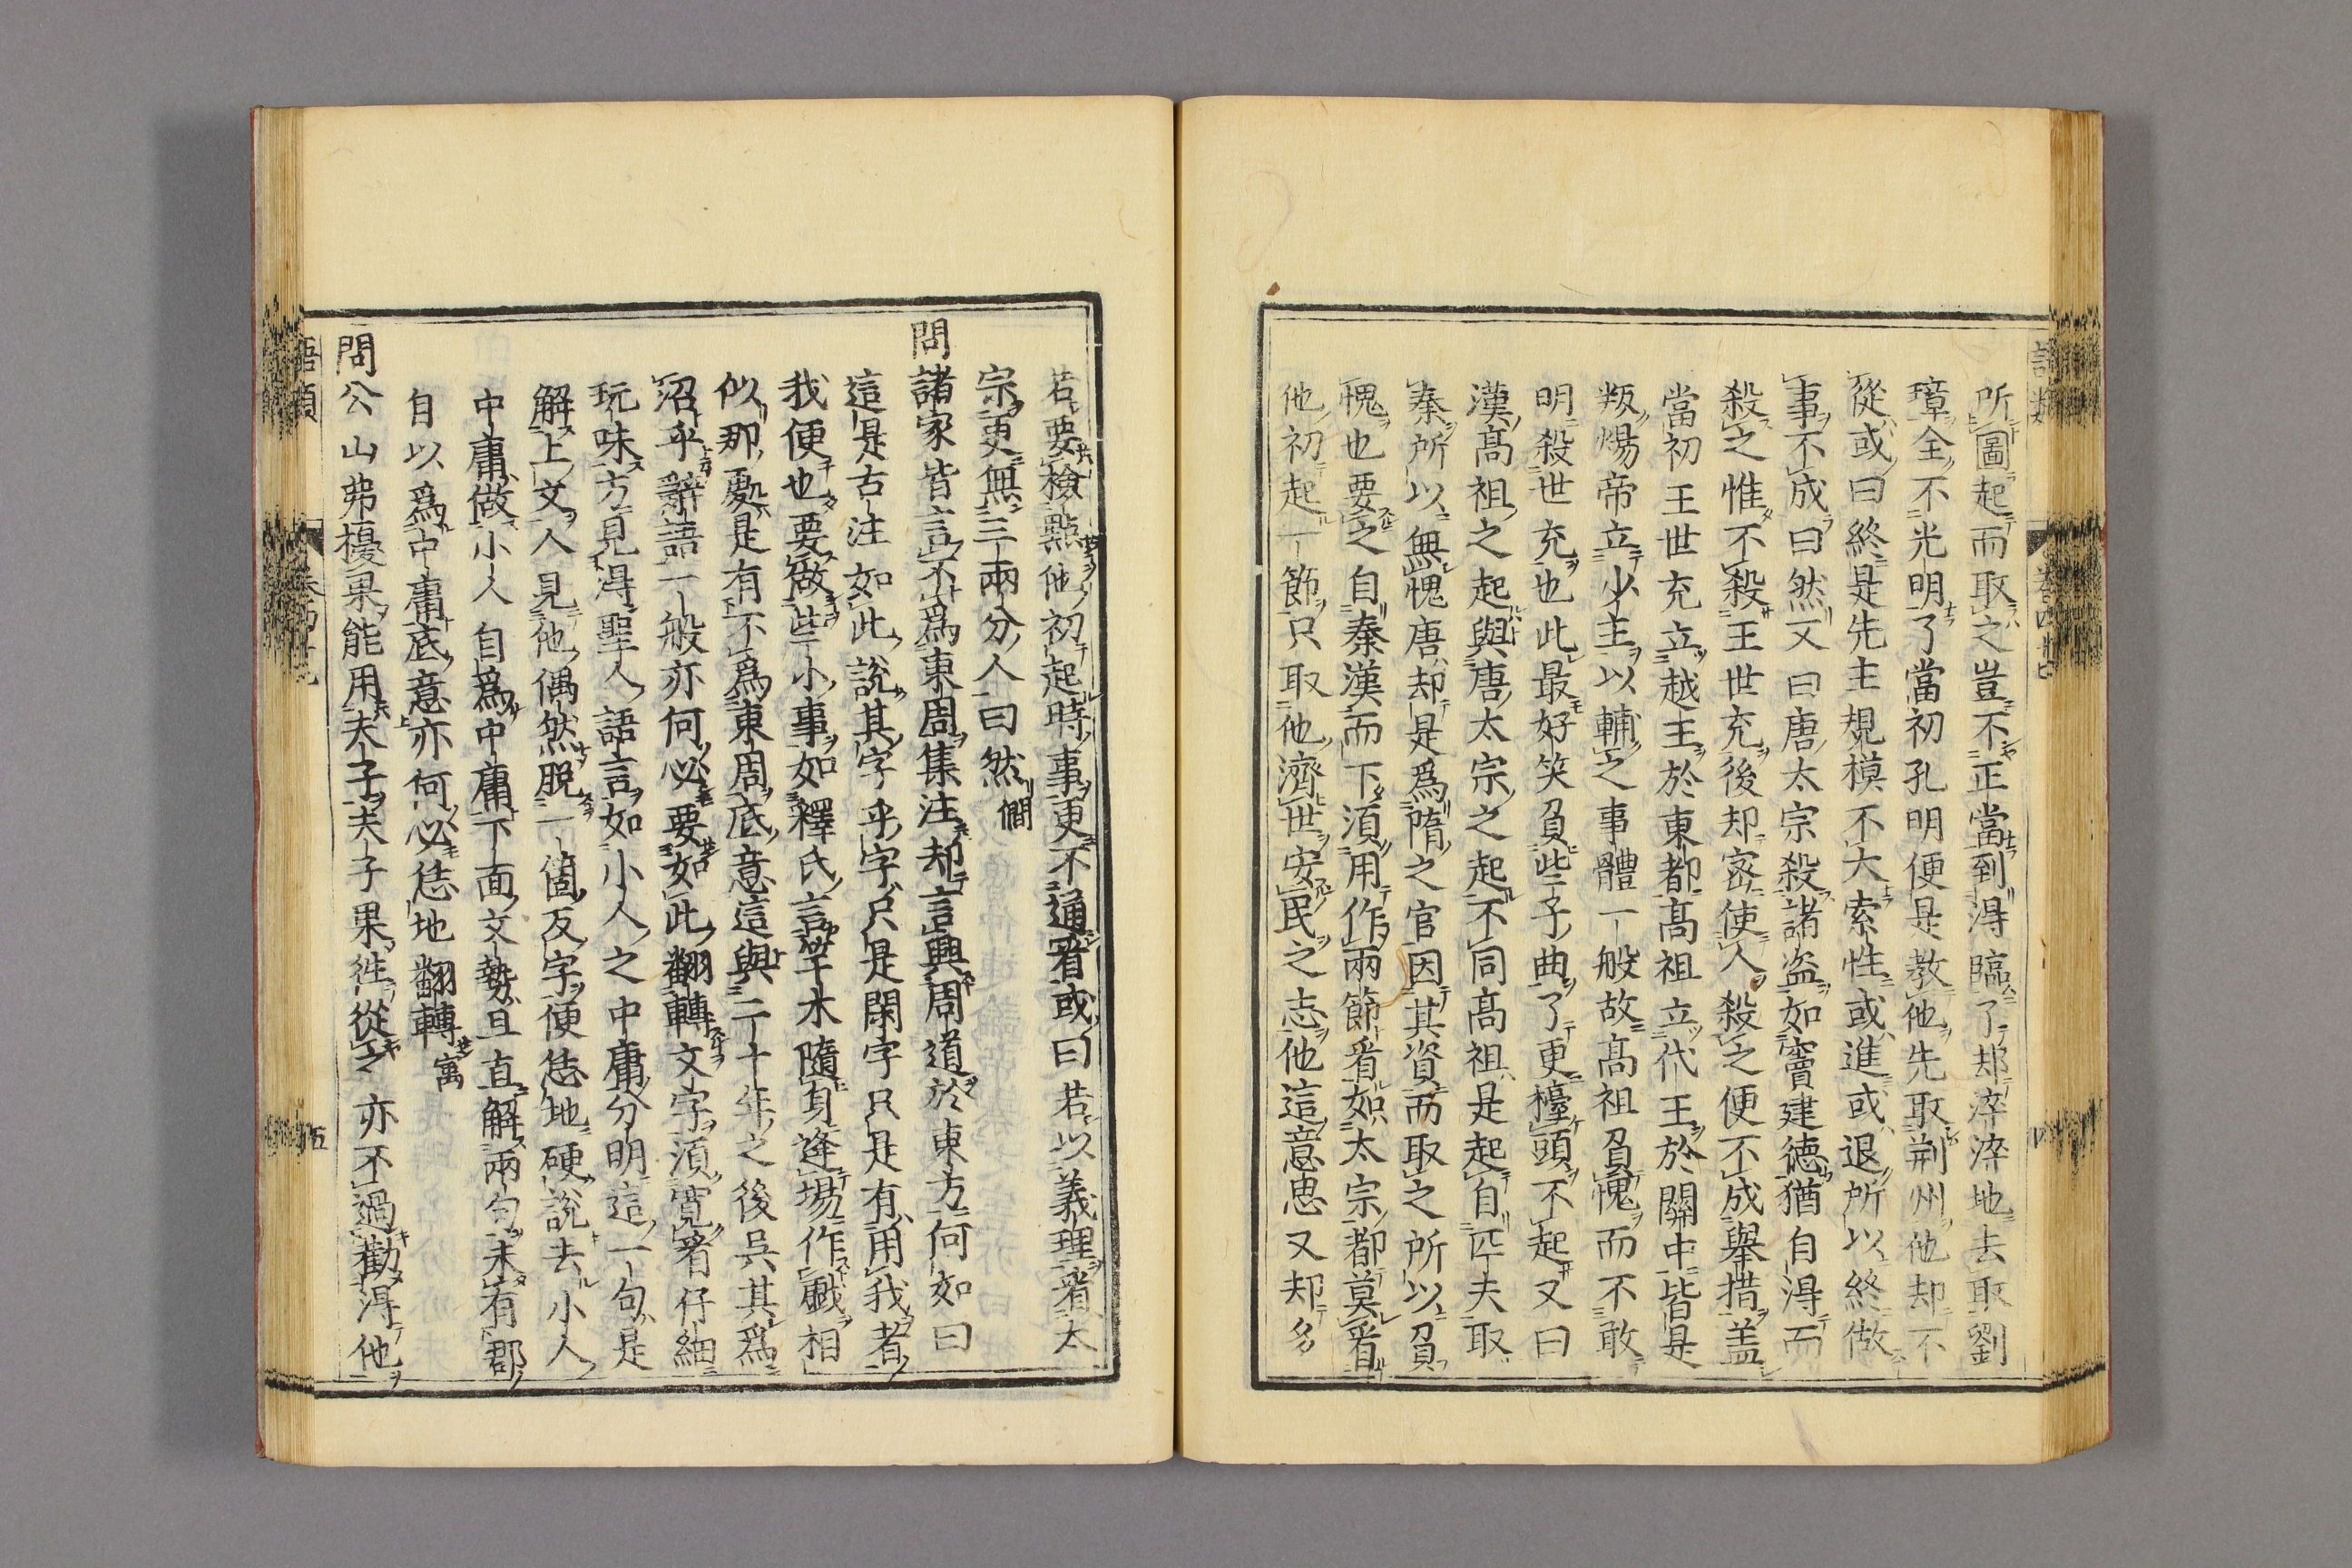 所圖起而取之豈不正當到得臨了却淬淬地去取劉
璋全不光明了當初孔明便是教他先取荊州他却不
從或曰終是先主規模不大索性或進或退所以終做
事不成曰然又曰唐太宗殺諸盗如竇建德猶自得而
殺之惟不殺王世充後却密使人殺之便不成舉措盖
當初王世充立越王於東都髙祖立代王於關中皆是
叛煬帝立少主以輔之事體一般故髙祖負愧而不敢
明殺世充也此最好笑負些子曲了更擡頭不起又曰
漢髙祖之起與唐太宗之起不同髙祖是起自匹夫取
秦所以無愧唐却是爲隋之官因其資而取之所以負
愧也要之自秦漢而下須用作兩節看如太宗都莫看
他初起一節只取他濟世安民之志他這意思又却多
若要檢點他初起時事更不通看或曰若以義理看太
宗更無三兩分人曰然 僩
問諸家皆言不爲東周集注却言興周道於東方何如曰
這是古注如此說其字乎字只是閑字只是有用我者
我便也要做些小事如釋氏言竿木隨身逢場作戲相
似那處是有不爲東周底意這與二十年之後吳其爲
沼乎辭語一般亦何必要如此翻轉文字須寛看仔細
玩味方見得聖人語言如小人之中庸分明這一句是
解上文人見他偶然脱一箇反字便恁地硬說去小人
中庸做小人自爲中庸下面文勢且直解兩句未有那
自以爲中庸底意亦何必恁地翻轉 㝢
問公山弗擾果能用夫子夫子果徃從之亦不過勸得他
語類
五